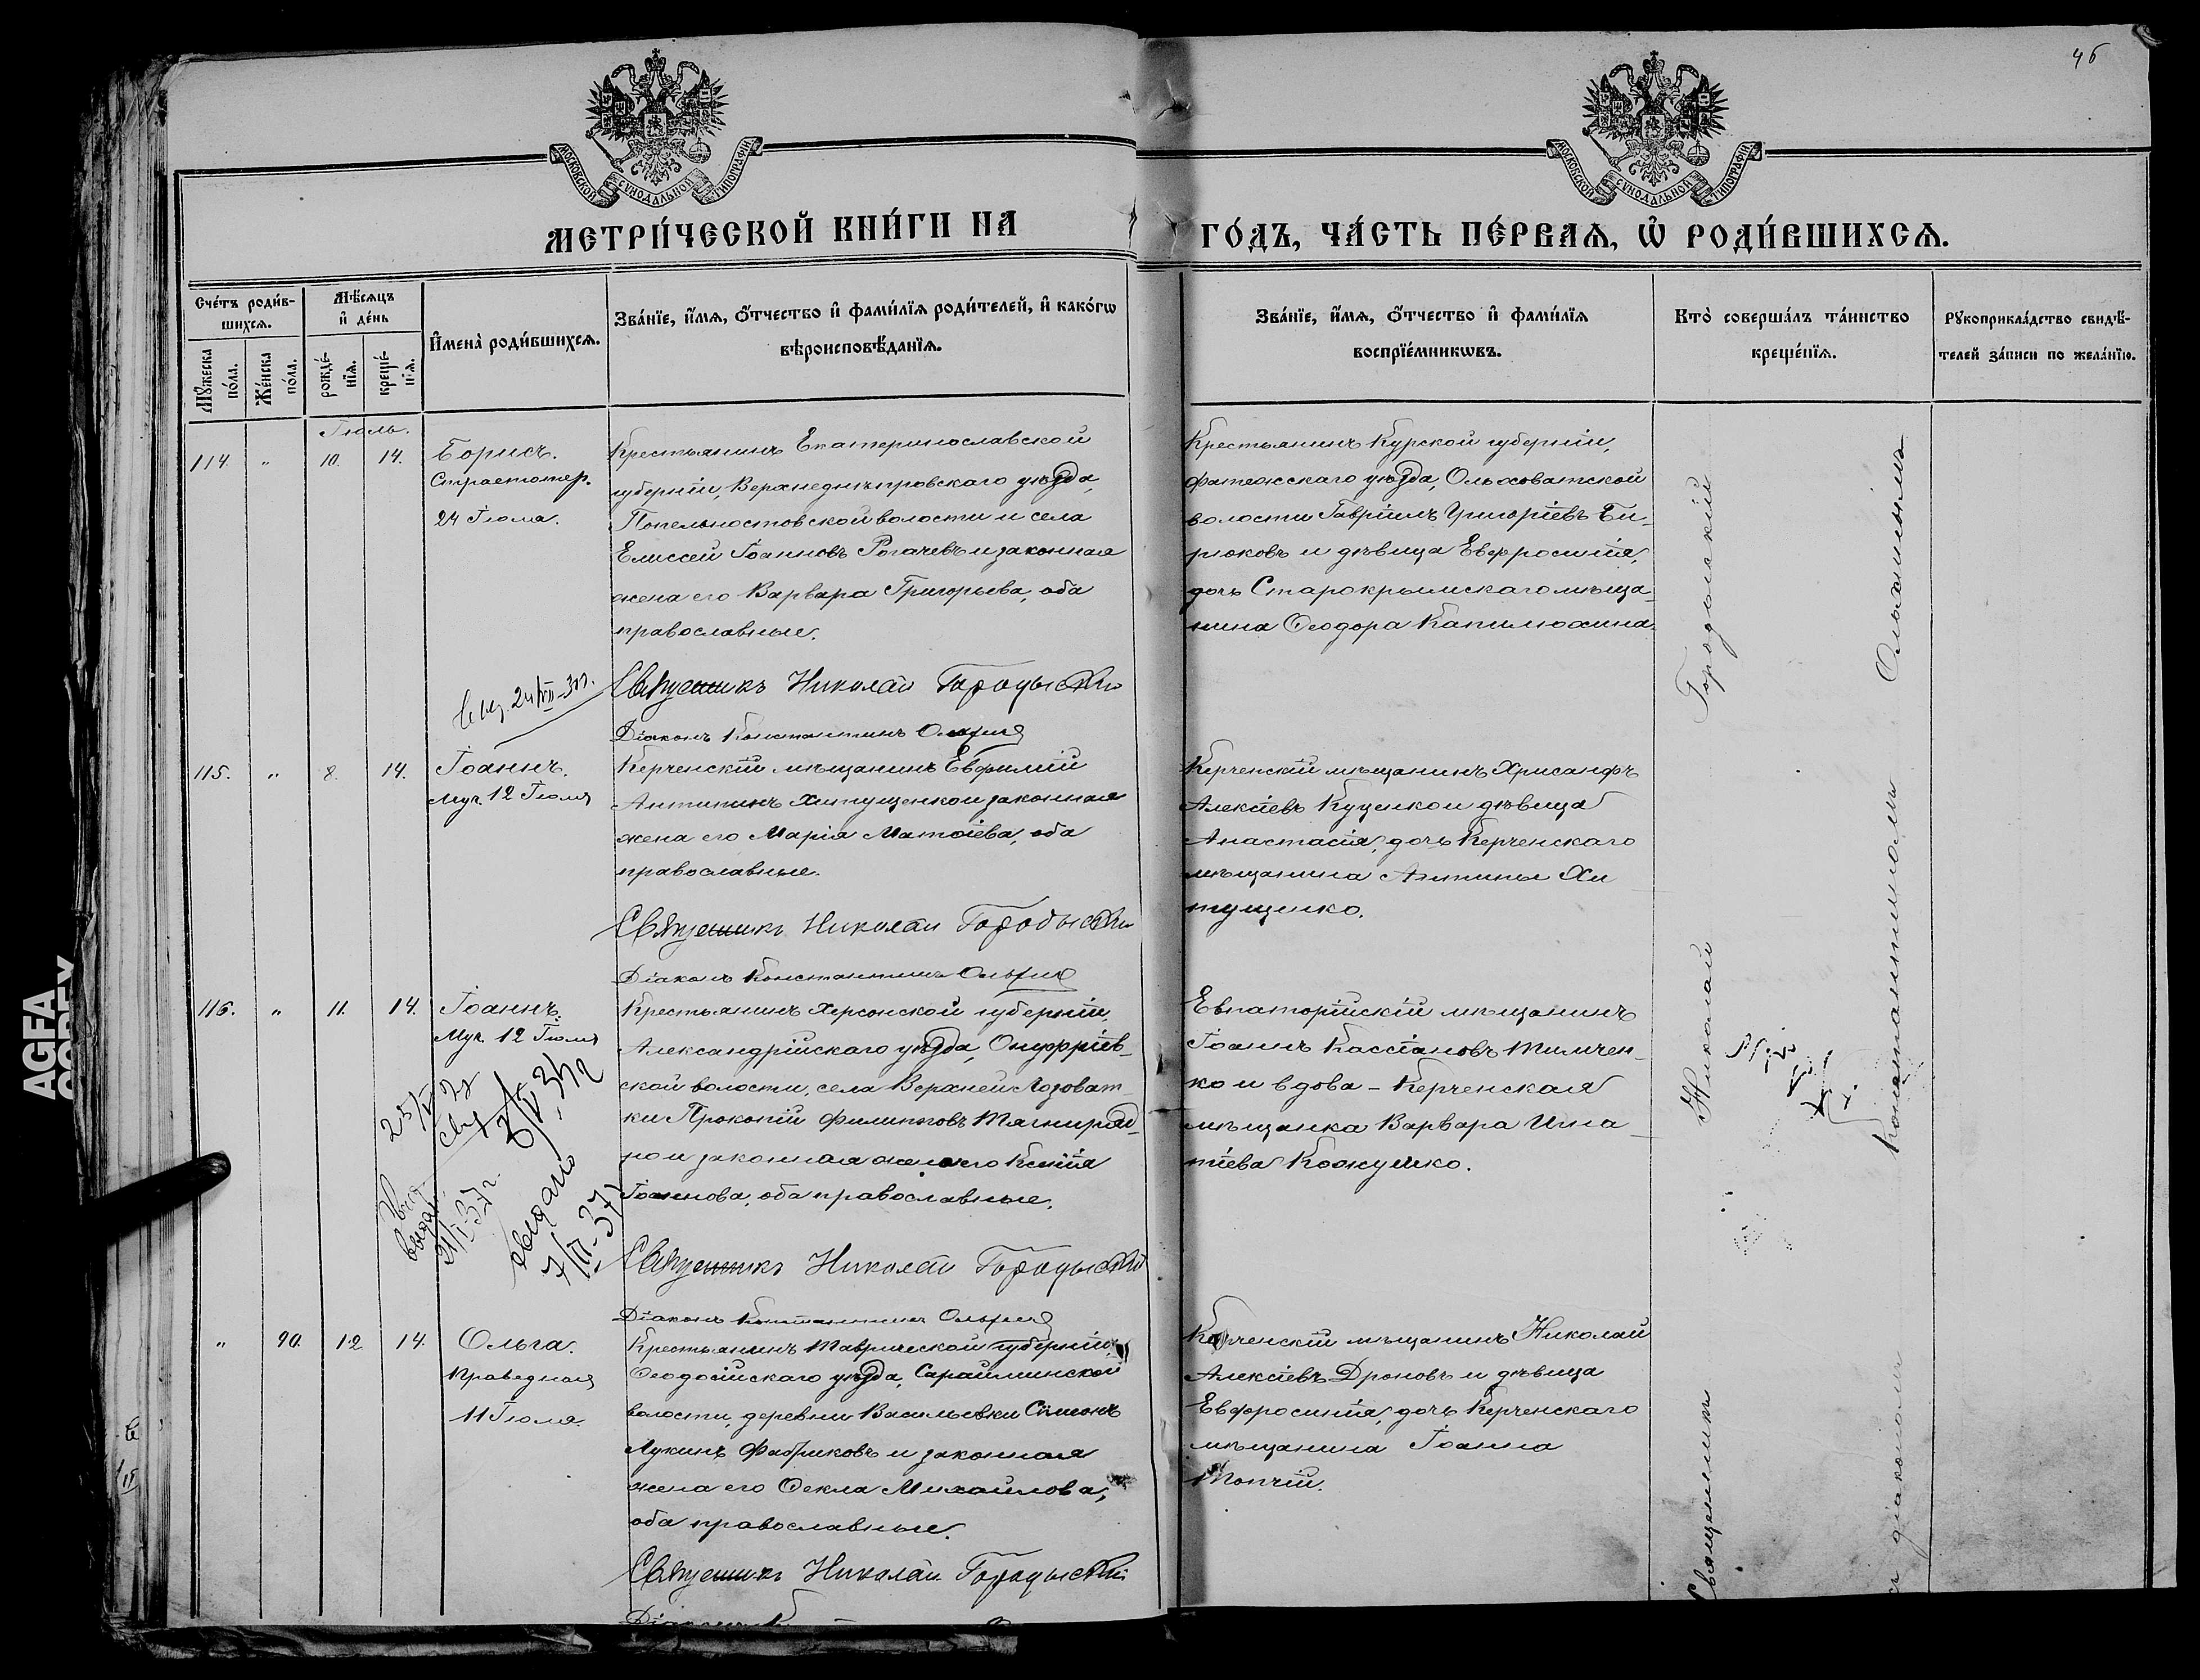 46
МОСКОВСКОЙ СѴНОДАЛЬНОЙ ТИПОГРАФІИ
МОСКОВСКОЙ СѴНОДАЛЬНОЙ ТИПОГРАФІИ
МЕТРИ́ЧЕСКОЙ КНИ́ГИ НА ГО́ДЪ, ЧА́СТЬ ПЕ́РВАЯ, Ѡ҆ РОДИ́ВШИХСЯ.
Сче́тъ роди́в-
шихся.
Мѣ́сяцъ
и҆ де́нь
Мꙋ́жеска
по́ла.
Же́нска
по́ла.
рожде́-
нїя.
креще́-
нїя.
И҆мена̀ роди́вшихся.
Зва́нїе, и҆́мя, ѻ҆́тчество и҆ фами́лїя роди́телей, и҆ како́гѡ
вѣроисповѣ́данїя.
Зва́нїе, и҆́мя, ѻ҆́тчество и҆ фами́лїя
воспрїе́мникѡвъ.
Кто̀ соверша́лъ та́инство
креще́нїя.
Рꙋкоприкла́дство свидѣ́-
телей за́писи по жела́нїю.
Іюль.
114. " 10. 14. Борисъ.
Страстотер.
24 Іюля.
Крестьянинъ Екатеринославской
губерніи, Верхнеднѣпровскаго уѣзда,
Попельностовской волости и села
Елиссей Іоанновъ Рогачевъ и законная
жена его Варвара Григорьева, оба
православные.
Священникъ Николай Городыскій
Діаконъ Константинъ
Крестьянинъ Курской губерніи,
Фатежскаго уѣзда, Ольховатской
волости Гавріилъ Григоріевъ Би-
рюковъ и дѣвица Евфросинія,
дочь Старокрымскаго мѣща-
нина Ѳеодора Капилюхина.
115. " 8. 14. Іоаннъ.
Муч. 12 Іюля
Керченскій мѣщанинъ Евфимій
Антипинъ Хитущенко и законная
жена его Марія Матѳіева, оба
православные.
Священникъ Николай Городыскій
Діаконъ Константинъ
Керченскій мѣщанинъ Хрисанфъ
Алексіевъ Куценко и дѣвица
Анастасія, дочь Керченскаго
мѣщанина Антипы Хи-
тущенко.
116. " 11. 14. Іоаннъ.
Муч. 12 Іюля
Крестьянинъ Херсонской губерніи,
Александрійскаго уѣзда, Онуфріев-
ской волости, села Верхней Лозоват-
ки Прокопій Филипповъ Тягниряд-
но и законная жена его Ксенія
Іоаннова, оба православные.
Священникъ Николай Городыскій
Діаконъ Константинъ
Евпаторійскій мѣщанинъ
Іоаннъ Кассіановъ Тимчен-
ко и вдова - Керченская
мѣщанка Варвара Игна-
тіева Кожушко.
выдано
7/II-37
" 90. 12 14. Ольга.
Праведная
11 Іюля.
Крестьянинъ Таврической губерніи,
Ѳеодосійскаго уѣзда, Сарайминской
волости, деревни Васильевки Симонъ
Лукинъ Фабриковъ и законная
жена его Ѳекла Михайлова,
оба православные.
Священникъ Николай Городыскій
Керченскій мѣщанинъ Николай
Алексіевъ Дроновъ и дѣвица
Евфросинія, дочь Керченскаго
мѣщанина Іоанна
Топчій.
Священникъ Николай Городыскій
съ діакономъ Константиномъ
AGFA